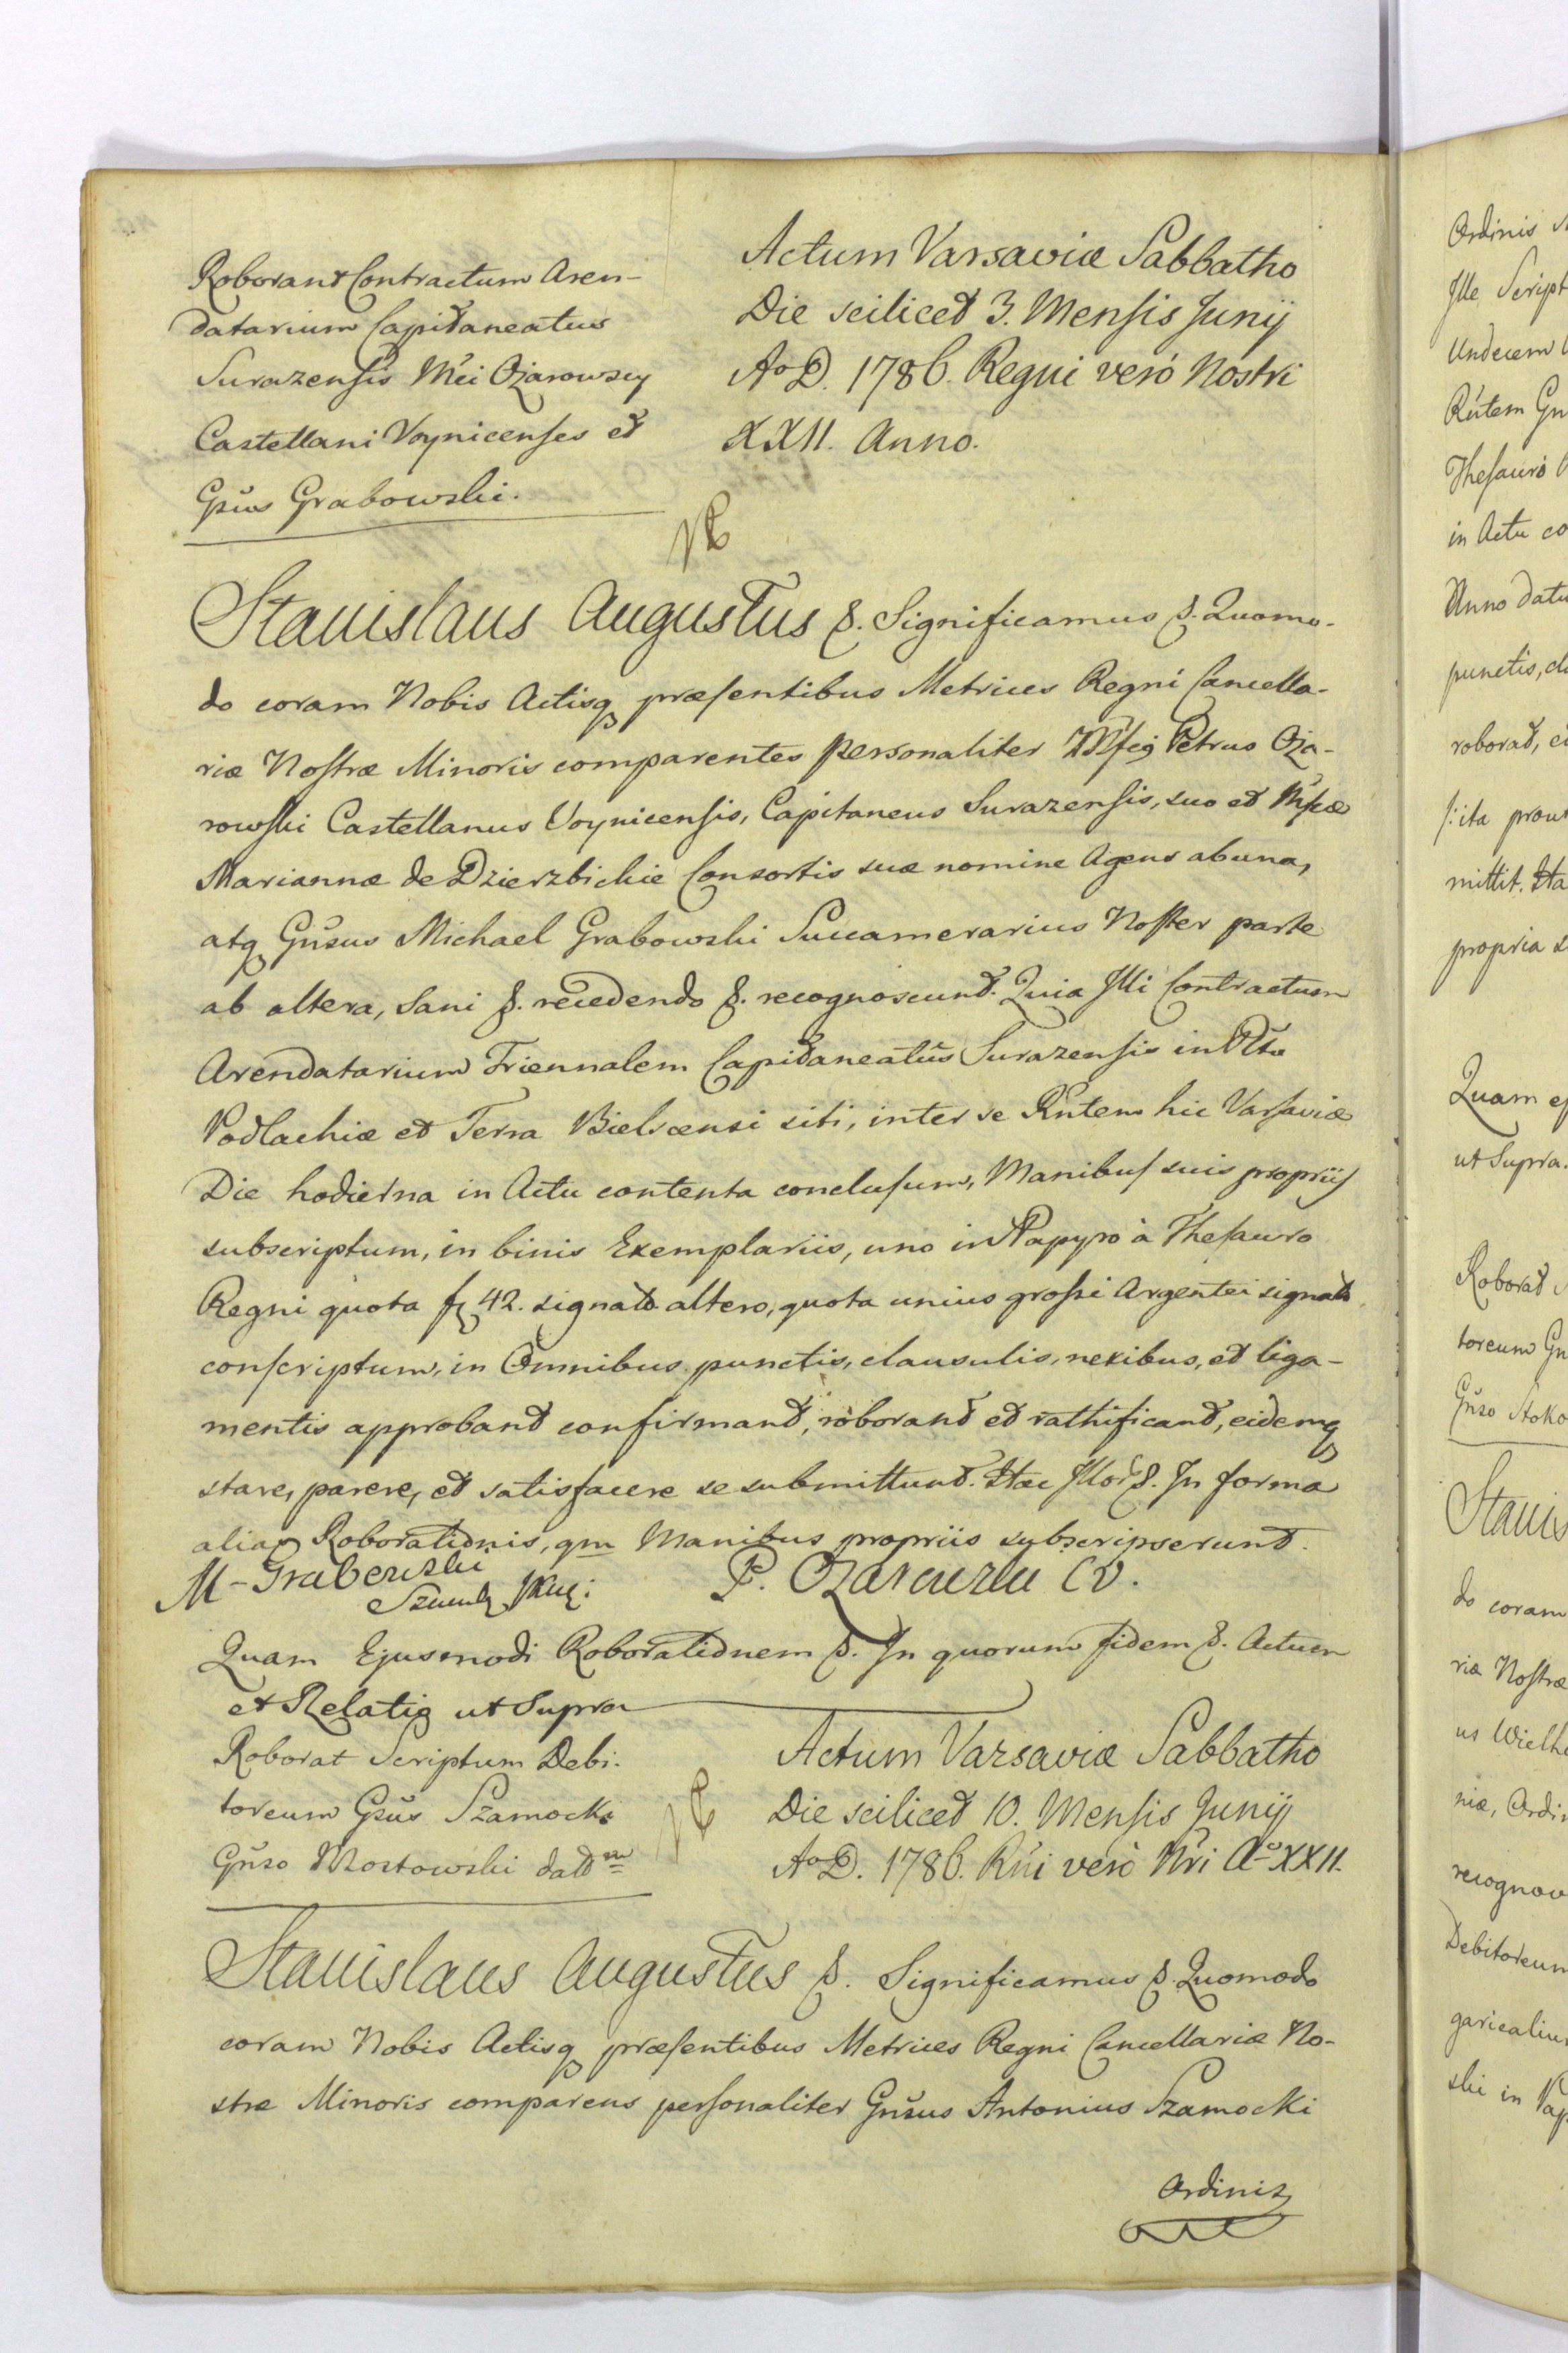 Roborant Contractum Aren-
datarium Capitaneatus
Surazensis Mci Ożarowscy
Castellani Voynicenses et
Gsus Grabowski.
Actum Varsaviæ Sabbatho
Die scilicet 3. Mensis Junij
Ao D. 1786. Regni verò Nostri
XXII. Anno.
Stanislaus Augustus &. Significamus &. Quomo-
do coram Nobis Actisq præsentibus Metrices Regni Cancella-
riæ Nostræ Minoris comparentes personaliter Petrus Oża-
rowski Castellanus Voynicensis, Capitaneus Surazensis, suo et
Mariannæ de Dzierzbickie Consortis suæ nomine Agens ab una,
atq Gnsus Michael Grabowski Succamerarius Noster parte
ab altera, Sani &. recedendo &. recognoscunt. Quia Illi Contractum
Arendatarium Triennalem Capitaneatûs Surazensis in Pltu
Podlachiæ et Terra Bielscensi siti, inter se Rntem hic Varsaviæ
Die hodierna in Actu contenta conclusum, Manibus suis proprijs
subscriptum, in binis Exemplariis, uno in Papyro à Thesauro
Regni quota f 42. signato altero, quota unius grossi Argentei signato
conscriptum, in Omnibus punctis, clausulis, nexibus, et liga-
mentis approbant confirmant, roborant et rathificant, eidemq
stare, parere, et satisfacere se submittunt. Itae Illor &. In forma
alias Roborationis, qm Manibus propriis subscripserunt.
M-Grabowski
P. Ożarowski CV.
Quam Ejusmodi Roborationem &. In quorum fidem &. Actum
et Relatio ut Supra
Roborat Scriptum Debi-
toreum Gsus Szamocki
Gnso Mostowski dat m
Actum Varsaviæ Sabbatho
Die scilicet 10. Mensis Junij
Ao D. 1786. Rni verò Nri Ao XXII.
Stanislaus Augustus &. Significamus &. Quomodo
coram Nobis Actisq præsentibus Metrices Regni Cancellariæ No-
stræ Minoris comparens personaliter Gnsus Antonius Szamocki
Ordinis
Ordinis
Ille Script
Undecem
Rntem Gn
Thesauro
in Actu co
Anno datu
punctis, cl
roborat, ei
/:ita prout
mittit. Ita
propria s
Quam ej
ut Supra.
Roborat
toreum Gn
Gnso Stoko
Stanis
do coram
riæ Nostræ
us Wielh
niæ, Ordin
recognov
Debitoreum
garicaliu
ski in Pap